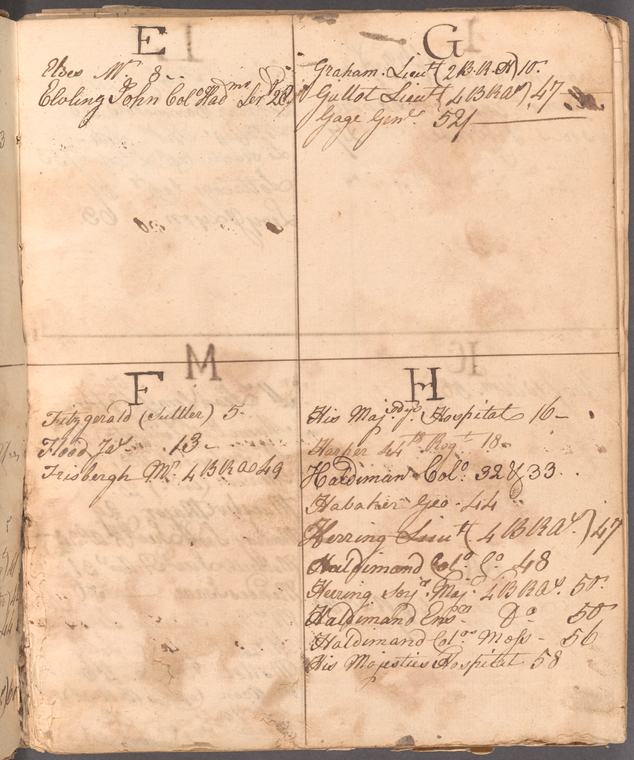 E
Elves Mr 8
Elvling John Colo Had ms Ser 28
G
Graham Lieut (2 B R A) 10
Gullot Lieut (4 B R Ay) 47
Gage Genl 52
F
Fitzgerald (Sutler) 5
Flood Jas 13
Frisbergh Mr 4 B R A 49
H
His Majestys Hospital 16
Harper 44th Regt 18
Haldiman Colo 32 & 33
Habaker Geo 44
Herring Lieut (4 B R Ay) 47
Haldimand Colo Co 48
Herring Maj 4 B R Ay 50
Haldimand Ensn Do 50
Haldimand Colos Mess 56
His Majesties Hospital 58